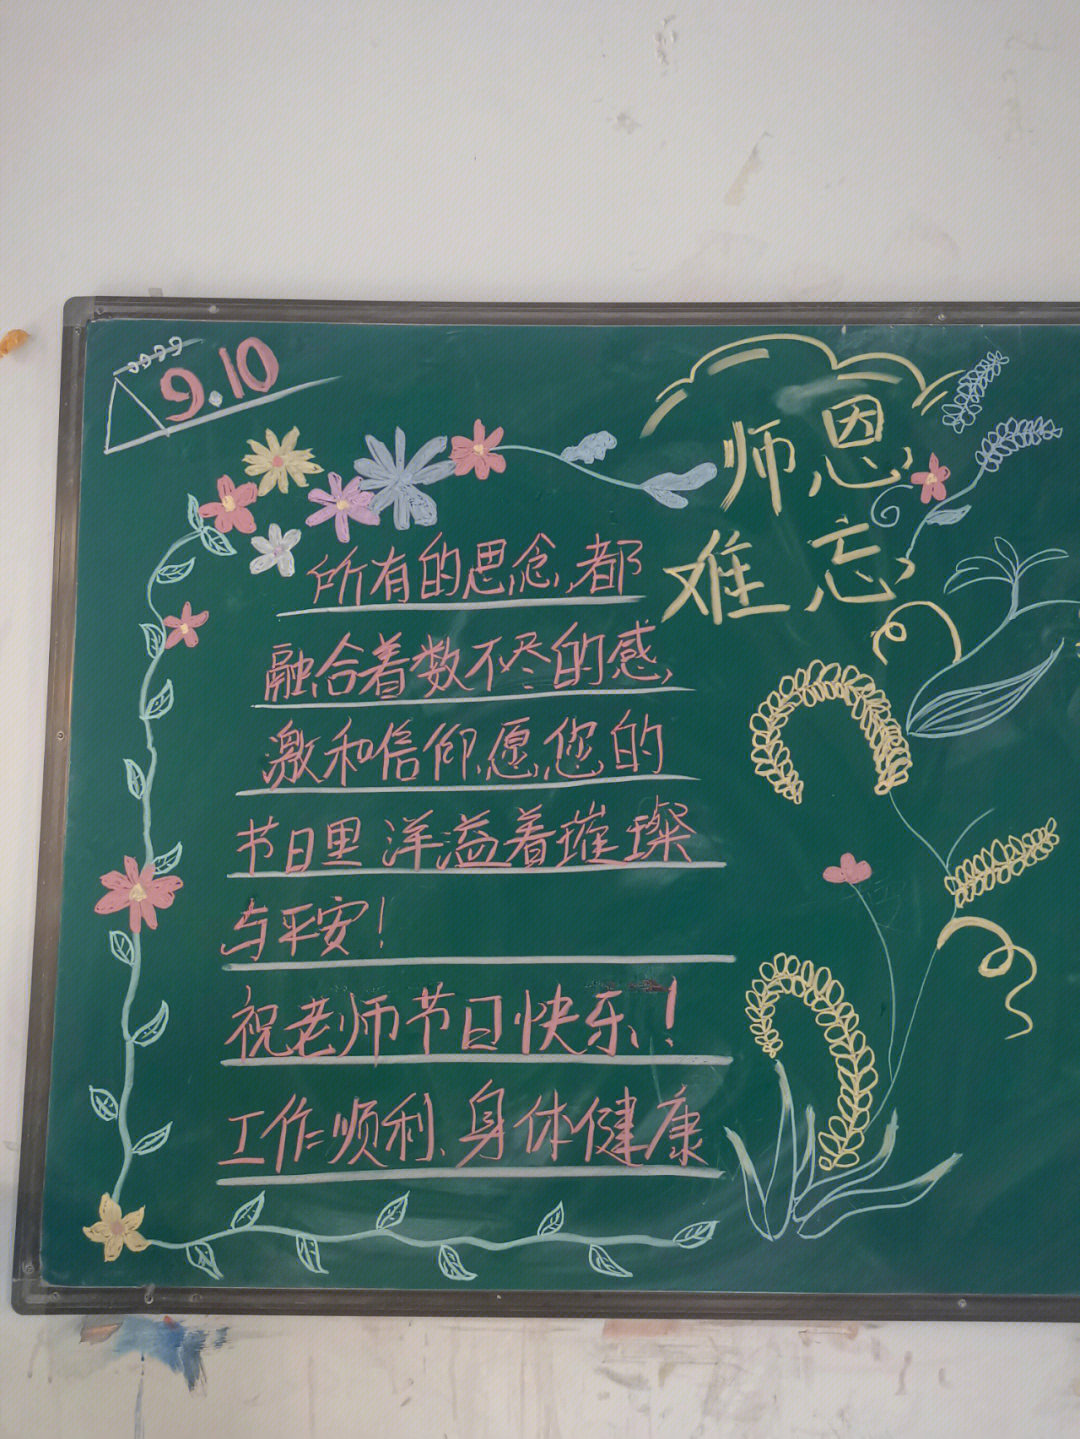 9.10
师恩
难忘
所有的思念,都
融合着数不尽的感
激和信仰,愿您的
节日里洋溢着璀璨
与平安!
祝老师节日快乐!
工作顺利、身体健康